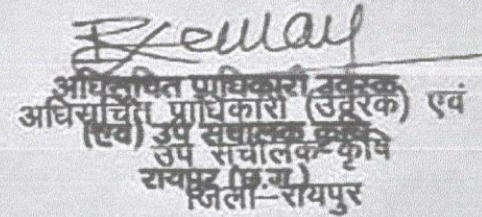 अधिसूचित प्राधिकारी उर्वरक
अधिसूचित प्राधिकारी (उर्वरक) एवं
(एवं) उप संचालक कृषि
उप संचालक-कृषि
रायपुर (छ.ग.)
जिला-रायपुर